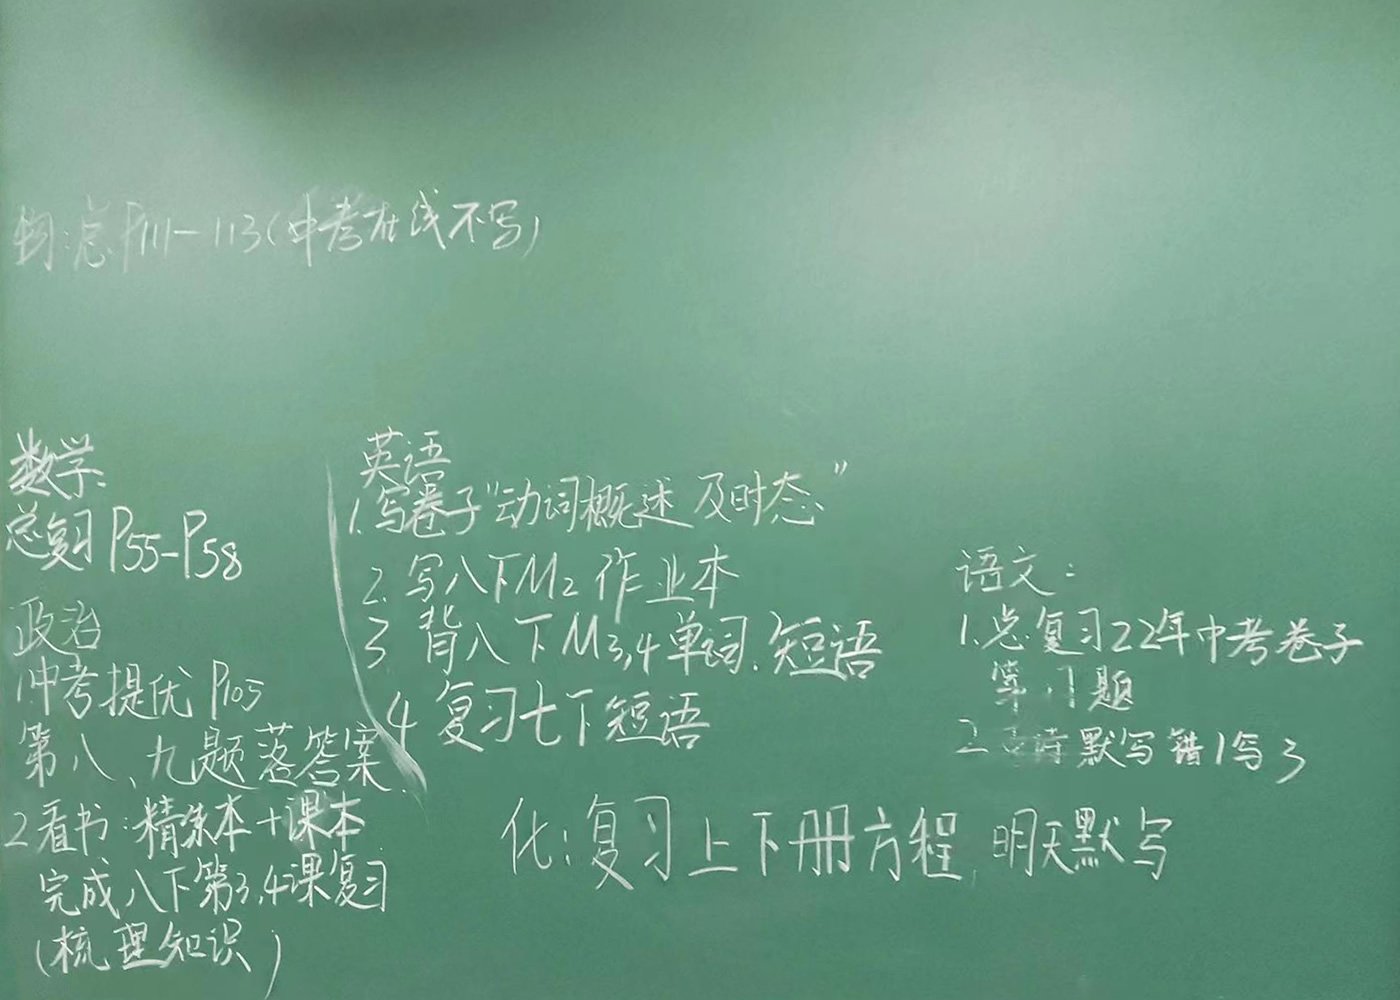 物:总P111-113(中考在线不写)
数学
总复习P55-P58
政治
1中考提优P105
第八、九题落答案.
2看书:精条本+课本
完成八下第3,4课复习
(梳理知识)
英语
1.写卷子“动词概述及时态”
2.写八下M2作业本
3 背八下M3,4单词.短语
4 复习七下短语
语文:
1.总复习22年中考卷子
第17题
2.默写错1写3
化:复习上下册方程,明天默写